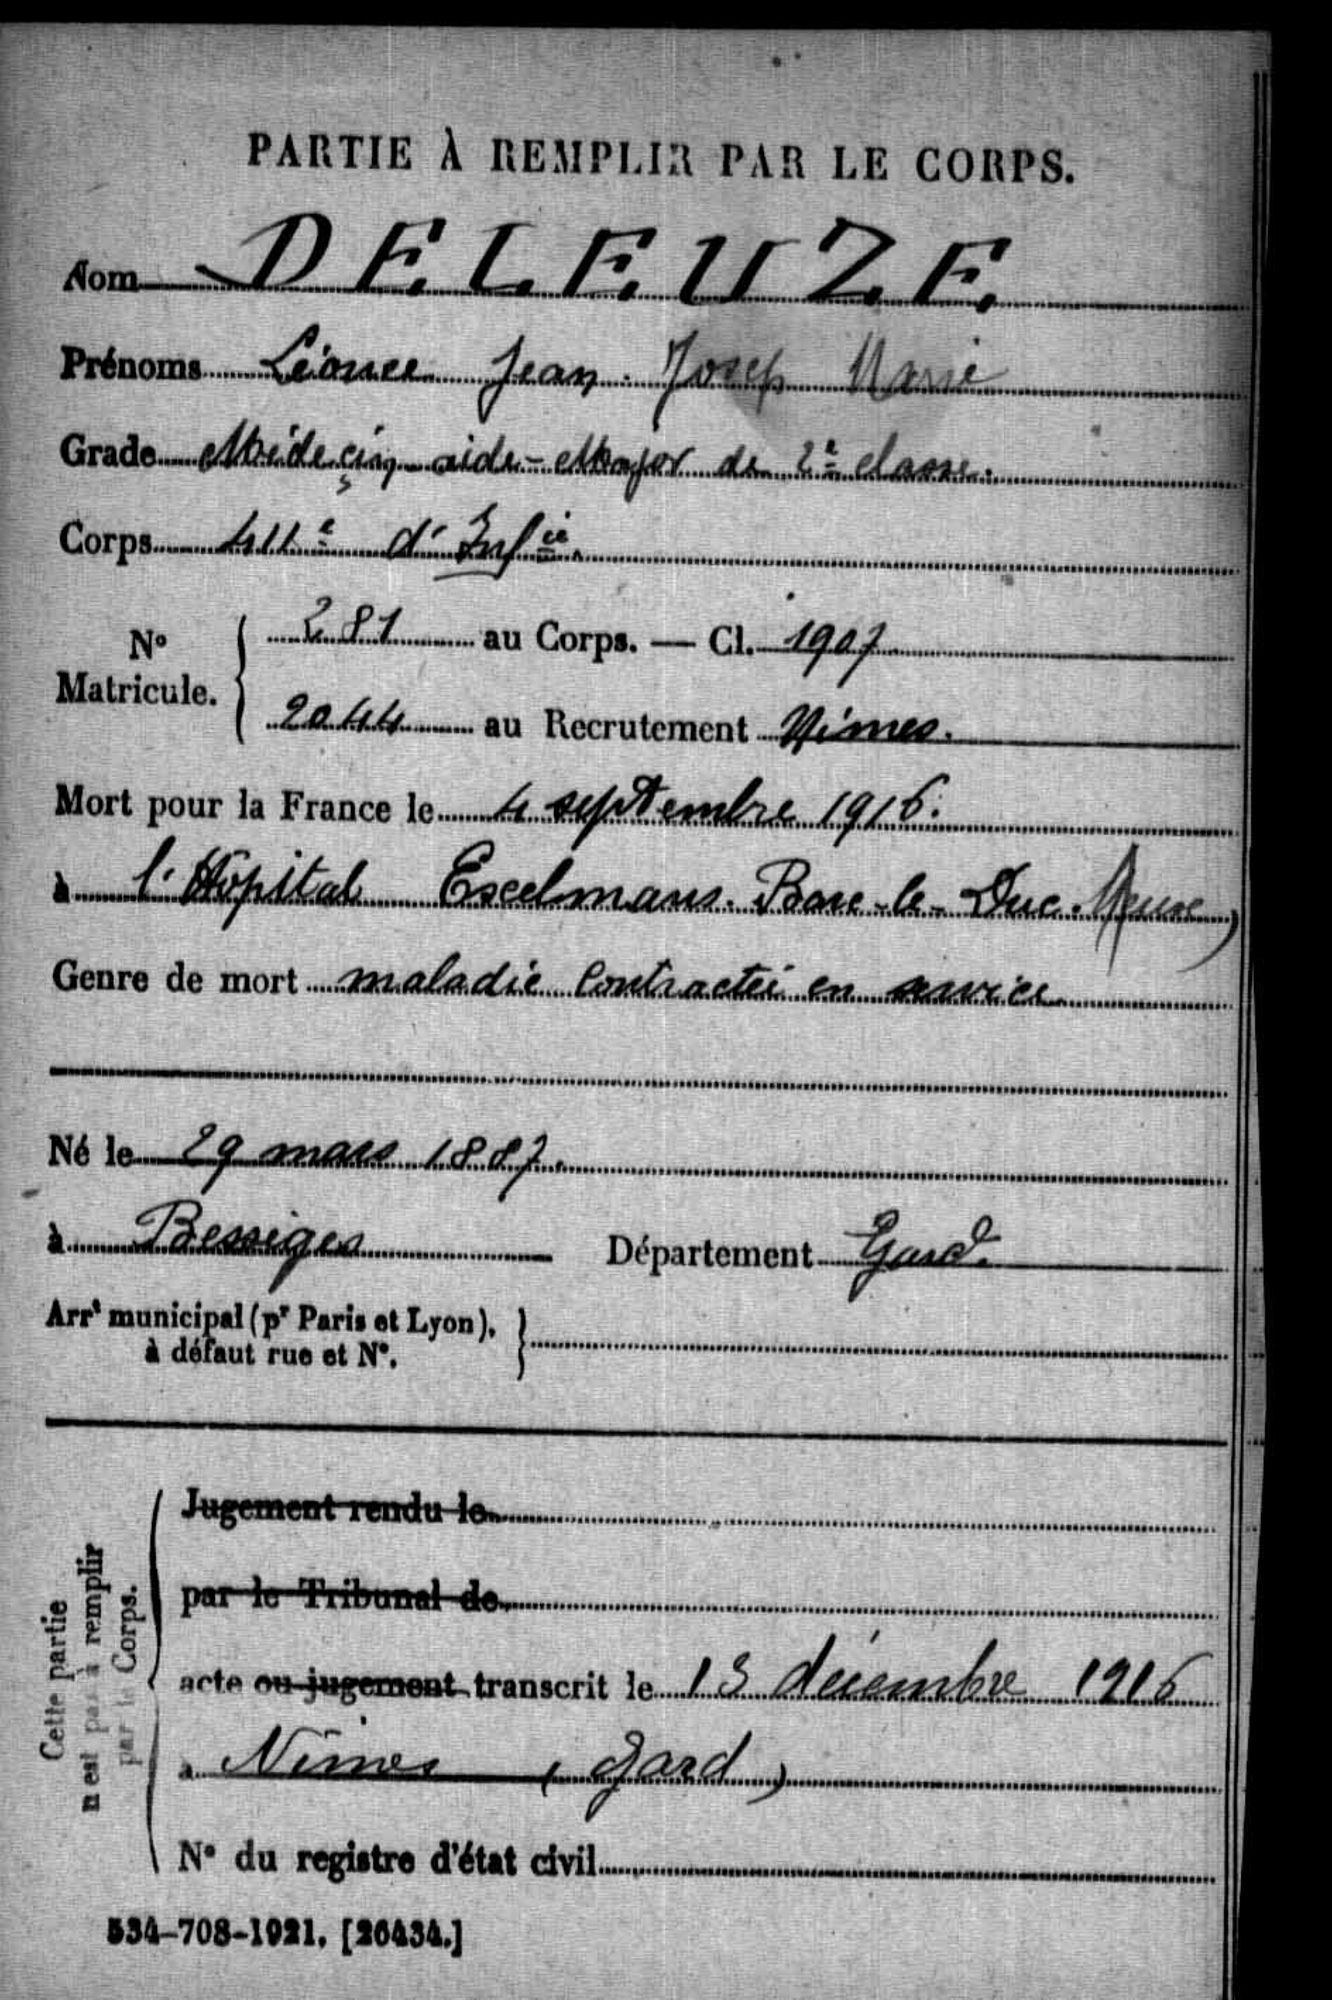 PARTIE À REMPLIR PAR LE CORPS.
Nom DELEUZE
Prénoms Léonce Jean Josep Marie
Grade Médecin aide-Major de 2e classe.
Corps 411e d'Infie.
No Matricule. { 281 au Corps. — Cl. 1907
2044 au Recrutement Nîmes.
Mort pour la France le 4 septembre 1916.
à l'Hôpital Excelmans. Bar-le-Duc. Meuse)
Genre de mort maladie contractée en service
Né le 29 mars 1887.
à Bessèges Département Gard.
Arrt municipal (pr Paris et Lyon), à défaut rue et No. }
Cette partie n'est pas à remplir par le Corps.
Jugement rendu le
par le Tribunal de
acte ou jugement transcrit le 13 décembre 1916
à Nîmes (Gard)
No du registre d'état civil
534-708-1921. [26434.]